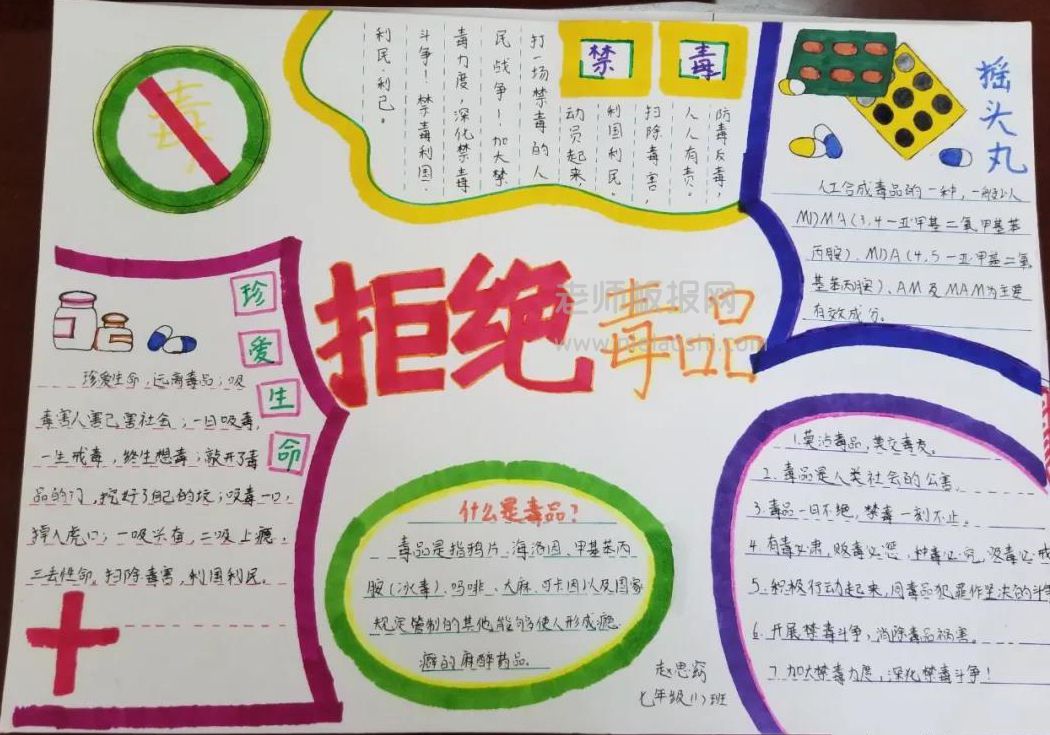 毒
禁毒
防毒反毒,
人人有责。
扫除毒害,
利国利民。
动员起来,
打一场禁毒的人
民战争!加大禁
毒力度,深化禁毒
斗争!禁毒利国.
利民.利己。
摇头丸
人工合成毒品的一种,一般以
MDMA(3,4一亚甲基二氧甲基苯
丙胺)、MDA(4,5一亚甲基二氧
基苯丙胺)、AM及MAM为主要
有效成分。
拒绝毒品
老师板报网
珍爱生命
珍爱生命,远离毒品;吸
毒害人害己害社会;一日吸毒,
一生戒毒,终生想毒;敲开了毒
品的门,挖好了自己的坟;吸毒一口,
掉入虎口;一吸兴奋,二吸上瘾,
三去性命。扫除毒害,利国利民。
什么是毒品?
毒品是指鸦片、海洛因、甲基苯丙
胺(冰毒)、吗啡、大麻、可卡因以及国家
规定管制的其他能够使人形成瘾
癖的麻醉药品。
赵思
七年级(1)班
1.莫沾毒品,莫交毒友。
2.毒品是人类社会的公害。
3.毒品一日不绝,禁毒一刻不止。
4.有毒必肃,贩毒必惩,种毒必究,吸毒必戒
5.积极行动起来,同毒品犯罪作坚决的斗争
6.开展禁毒斗争,消除毒品祸害。
7.加大禁毒力度,深化禁毒斗争!